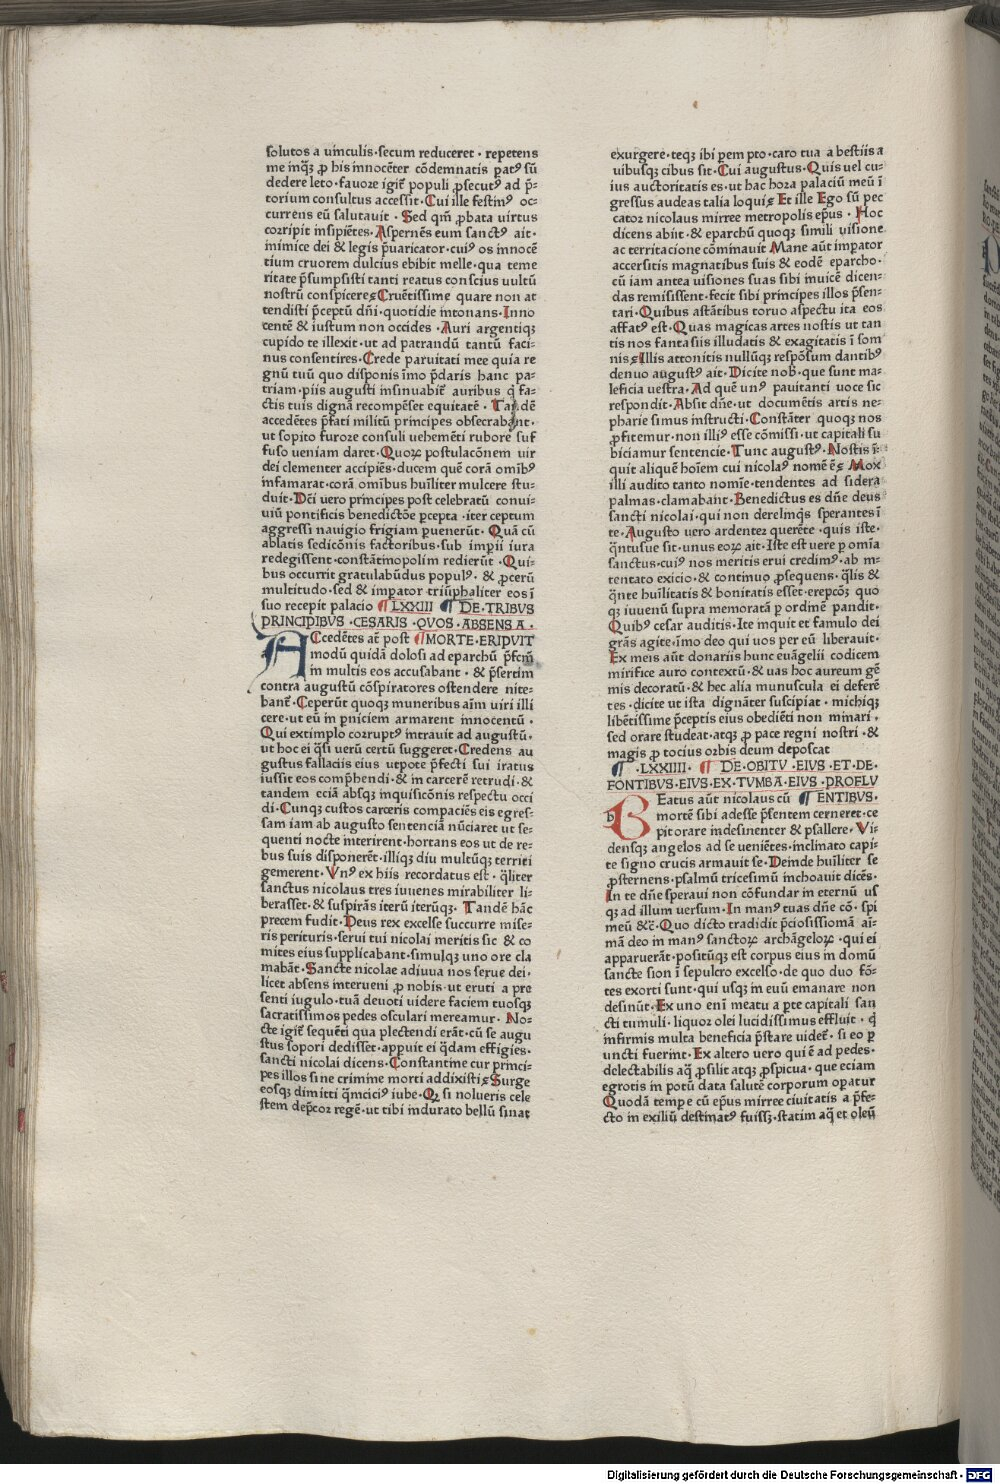 solutos a uinculis·secum reduceret· repetens
me inqꝫ ꝓ his innocēter cōdemnatis patꝰ sū
dedere leto·fauore igit᷑ populi ꝓsecutꝰ ad p̄-
torium consultus accessit·Cui ille festinꝰ oc-
currens eū salutauit · Sed qm̄ ꝓbata uirtus
corripit insipiētes·Aspernēs eum sanctꝰ ait·
inimice dei & legis p̄uaricator·cuiꝰ os innocē
tium cruorem dulcius ebibit melle·qua teme
ritate p̄sumpsisti tanti reatus conscius uultū
nostrū conspicere Cruētissime quare non at
tendisti p̄ceptū dn̄i·quotidie intonans·Inno
centē & iustum non occides ·Auri argentiqꝫ
cupido te illexit·ut ad patrandū tantū faci-
nus consentires·Crede paruitati mee quia re
gnū tuū quo disponis īmo p̄daris hanc pa-
triam·piis augusti insinuabit᷑ auribus q̇ fa-
ctis tuis dignā recompēset equitatē · Tandē
accedētes p̄fati militū principes obsecrabant·
ut sopito furore consuli uehemēti rubore suf
fuso ueniam daret·Quoꝝ postulacōnem uir
dei clementer accipiēs·ducem quē corā omībꝰ
infamarat·corā omibus huīliter mulcere stu-
duit·Dēi uero principes post celebratū conui-
uiū pontificis benedictōe ꝑcepta ·iter ceptum
aggressi nauigio frigiam ꝑuenerūt · Quā cū
ablatis sedicōnis factoribus·sub impii iura
redegissent·constātinopolim redierūt ·Qui-
bus occurrit gratulabūdus populꝰ· & ꝓcerū
multitudo·sed & imꝑator triūphaliter eos ī
suo recepit palacio ¶ LXXIII ¶ DE·TRIBVS
PRINCIPIBVS ·CESARIS ·QVOS·ABSENS A·
ACcedētes at̄ post ¶MORTE·ERIPVIT
modū quidā dolosi ad eparchū p̄fcm̄
in multis eos accusabant · & p̄sertim
contra augustū cōspiratores ostendere nite-
bant᷑·Ceperūt quoqꝫ muneribus aīm uiri illi
cere·ut eū in ꝑniciem armarent innocentū ·
Qui extimplo corruptꝰ intrauit ad augustū·
ut hoc ei q̇si uerū certū suggeret·Credens au
gustus fallaciis eius utpote p̄fecti sui iratus
iussit eos comp̄hendi·& in carcerē retrudi·&
tandem eciā absqꝫ inquisicōnis respectu occi
di·Cunqꝫ custos carceris compaciēs eis egres-
sam iam ab augusto sentenciā nūciaret ut se-
quenti nocte interirent·hortans eos ut de re-
bus suis disponerēt·illiqꝫ diu multūqꝫ territi
gemerent·Vnꝰ ex hiis recordatus est· q̇liter
sanctus nicolaus tres iuuenes mirabiliter li-
berasset·& suspirās iterū iterūqꝫ· Tandē hāc
precem fudit·Deus rex excelse succurre mise-
ris perituris·serui tui nicolai meritis sic & co
mites eius supplicabant·simulqꝫ uno ore cla
mabāt·Sancte nicolae adiuua nos serue dei·
licet absens interueni ꝓ nobis·ut eruti a pre
senti iugulo·tuā deuoti uidere faciem tuosqꝫ
sacratissimos pedes osculari mereamur· No-
cte igit᷑ sequēti qua plectendi erāt·cū se augu
stus sopori dedisset·appuit ei q̇dam effigies·
sancti nicolai dicens·Constantine cur princi-
pes illos sine crimine morti addixisti Surge
eosqꝫ dimitti q̇mciciꝰ iube·Qꝫ si nolueris cele
stem dep̄cor regē·ut tibi indurato bellū sinat
exurgere·teqꝫ ibi ꝑempto·caro tua a bestiis a
uibusqꝫ cibus sit·Cui augustus·Quis uel cu-
ius auctoritatis es·ut hac hora palaciū meū ī
gressus audeas talia loqui Et ille Ego sū pec
cator nicolaus mirree metropolis ep̄us · Hoc
dicens abiit·& eparchū quoqꝫ simili uisione
ac territacione cōminauit Mane aūt imꝑator
accersitis magnatibus suis & eodē eparcho·
cū iam antea uisiones suas sibi inuicē dicen-
das remisissent·fecit sibi principes illos p̄sen-
tari·Quibus astātibus toruo aspectu ita eos
affatꝰ est·Quas magicas artes nostis ut tan
tis nos fantasiis illudatis & exagitatis ī som
nis Illis attonitis nullūqꝫ respōsum dantibꝰ
denuo augustꝰ ait·Dicite nob̄·que sunt ma-
leficia uestra·Ad quē unꝰ pauitanti uoce sic
respondit·Absit dn̄e·ut documētis artis ne-
pharie simus instructi·Constāter quoqꝫ nos
ꝓfitemur·non illiꝰ esse cōmissi·ut capitali su
biciamur sentencie·Tunc augustꝰ·Nostis ī-
quit aliquē hoīem cui nicolaꝰ nomē ē Mox
illi audito tanto nomīe·tendentes ad sidera
palmas·clamabant·Benedictus es dn̄e deus
sancti nicolai·qui non derelinq̄s sperantes ī
te·Augusto uero ardenter querēte ·quis iste·
q̇ntusue sit·unus eoꝝ ait·Iste est uere ꝑ omīa
sanctus·cuiꝰ nos meritis erui credimꝰ·ab in-
tentato exicio·& continuo ꝓsequens·q̄lis &
q̄nte huīlitatis & bonitatis esset·erepcōꝫ quo
qꝫ iuuenū supra memoratā ꝑ ordinē pandit·
Quibꝰ cesar auditis·Ite inquit et famulo dei
grās agite·īmo deo qui uos per eū liberauit·
Ex meis aūt donariis hunc euāgelii codicem
mirifice auro contextū·& uas hoc aureum gē
mis decoratū·& hec alia munuscula ei deferē
tes·dicite ut ista dignāter suscipiat·michiqꝫ
libētissime p̄ceptis eius obediēti non minari·
sed orare studeat·atqꝫ ꝓ pace regni nostri·&
magis ꝓ tocius orbis deum deposcat
¶ ·LXXIIII· ¶ DE·OBITV ·EIVS·ET·DE·
FONTIBVS·EIVS·EX·TVMBA·EIVS·PROFLV
BEatus aūt nicolaus cū ¶ ENTIBVS·
mortē sibi adesse p̄sentem cerneret·ce
pit orare indesinenter & psallere·Vi-
densqꝫ angelos ad se ueniētes·inclinato capi-
te signo crucis armauit se·Deinde huīliter se
ꝓsternens·psalmū tricesimū inchoauit dicēs·
In te dn̄e speraui non cōfundar in eternū us
qꝫ ad illum uersum·In manꝰ tuas dn̄e cō· spi
meū &c̄·Quo dicto tradidit p̄ciosissiomā ai-
mā deo in manꝰ sanctoꝝ archāgeloꝝ·qui ei
apparuerāt·positūqꝫ est corpus eius in domū
sancte sion ī sepulcro excelso·de quo duo fō-
tes exorti sunt·qui usqꝫ in euū emanare non
desinūt·Ex uno enī meatu a ꝑte capitali san
cti tumuli·liquor olei lucidissimus effluit · q̇
infirmis multa beneficia p̄stare uidet᷑· si eo ꝑ
uncti fuerint·Ex altero uero qui ē ad pedes·
delectabilis aq̄ ꝓsilit atqꝫ ꝓspicua·que eciam
egrotis in potū data salutē corporum oꝑatur
Quodā tempe cū ep̄us mirree ciuitatis a p̄fe-
cto in exiliū destinatꝰ fuissꝫ·statim aq̄ et oleū
Digitalisierung gefördert durch die Deutsche Forschungsgemeinschaft - DFG